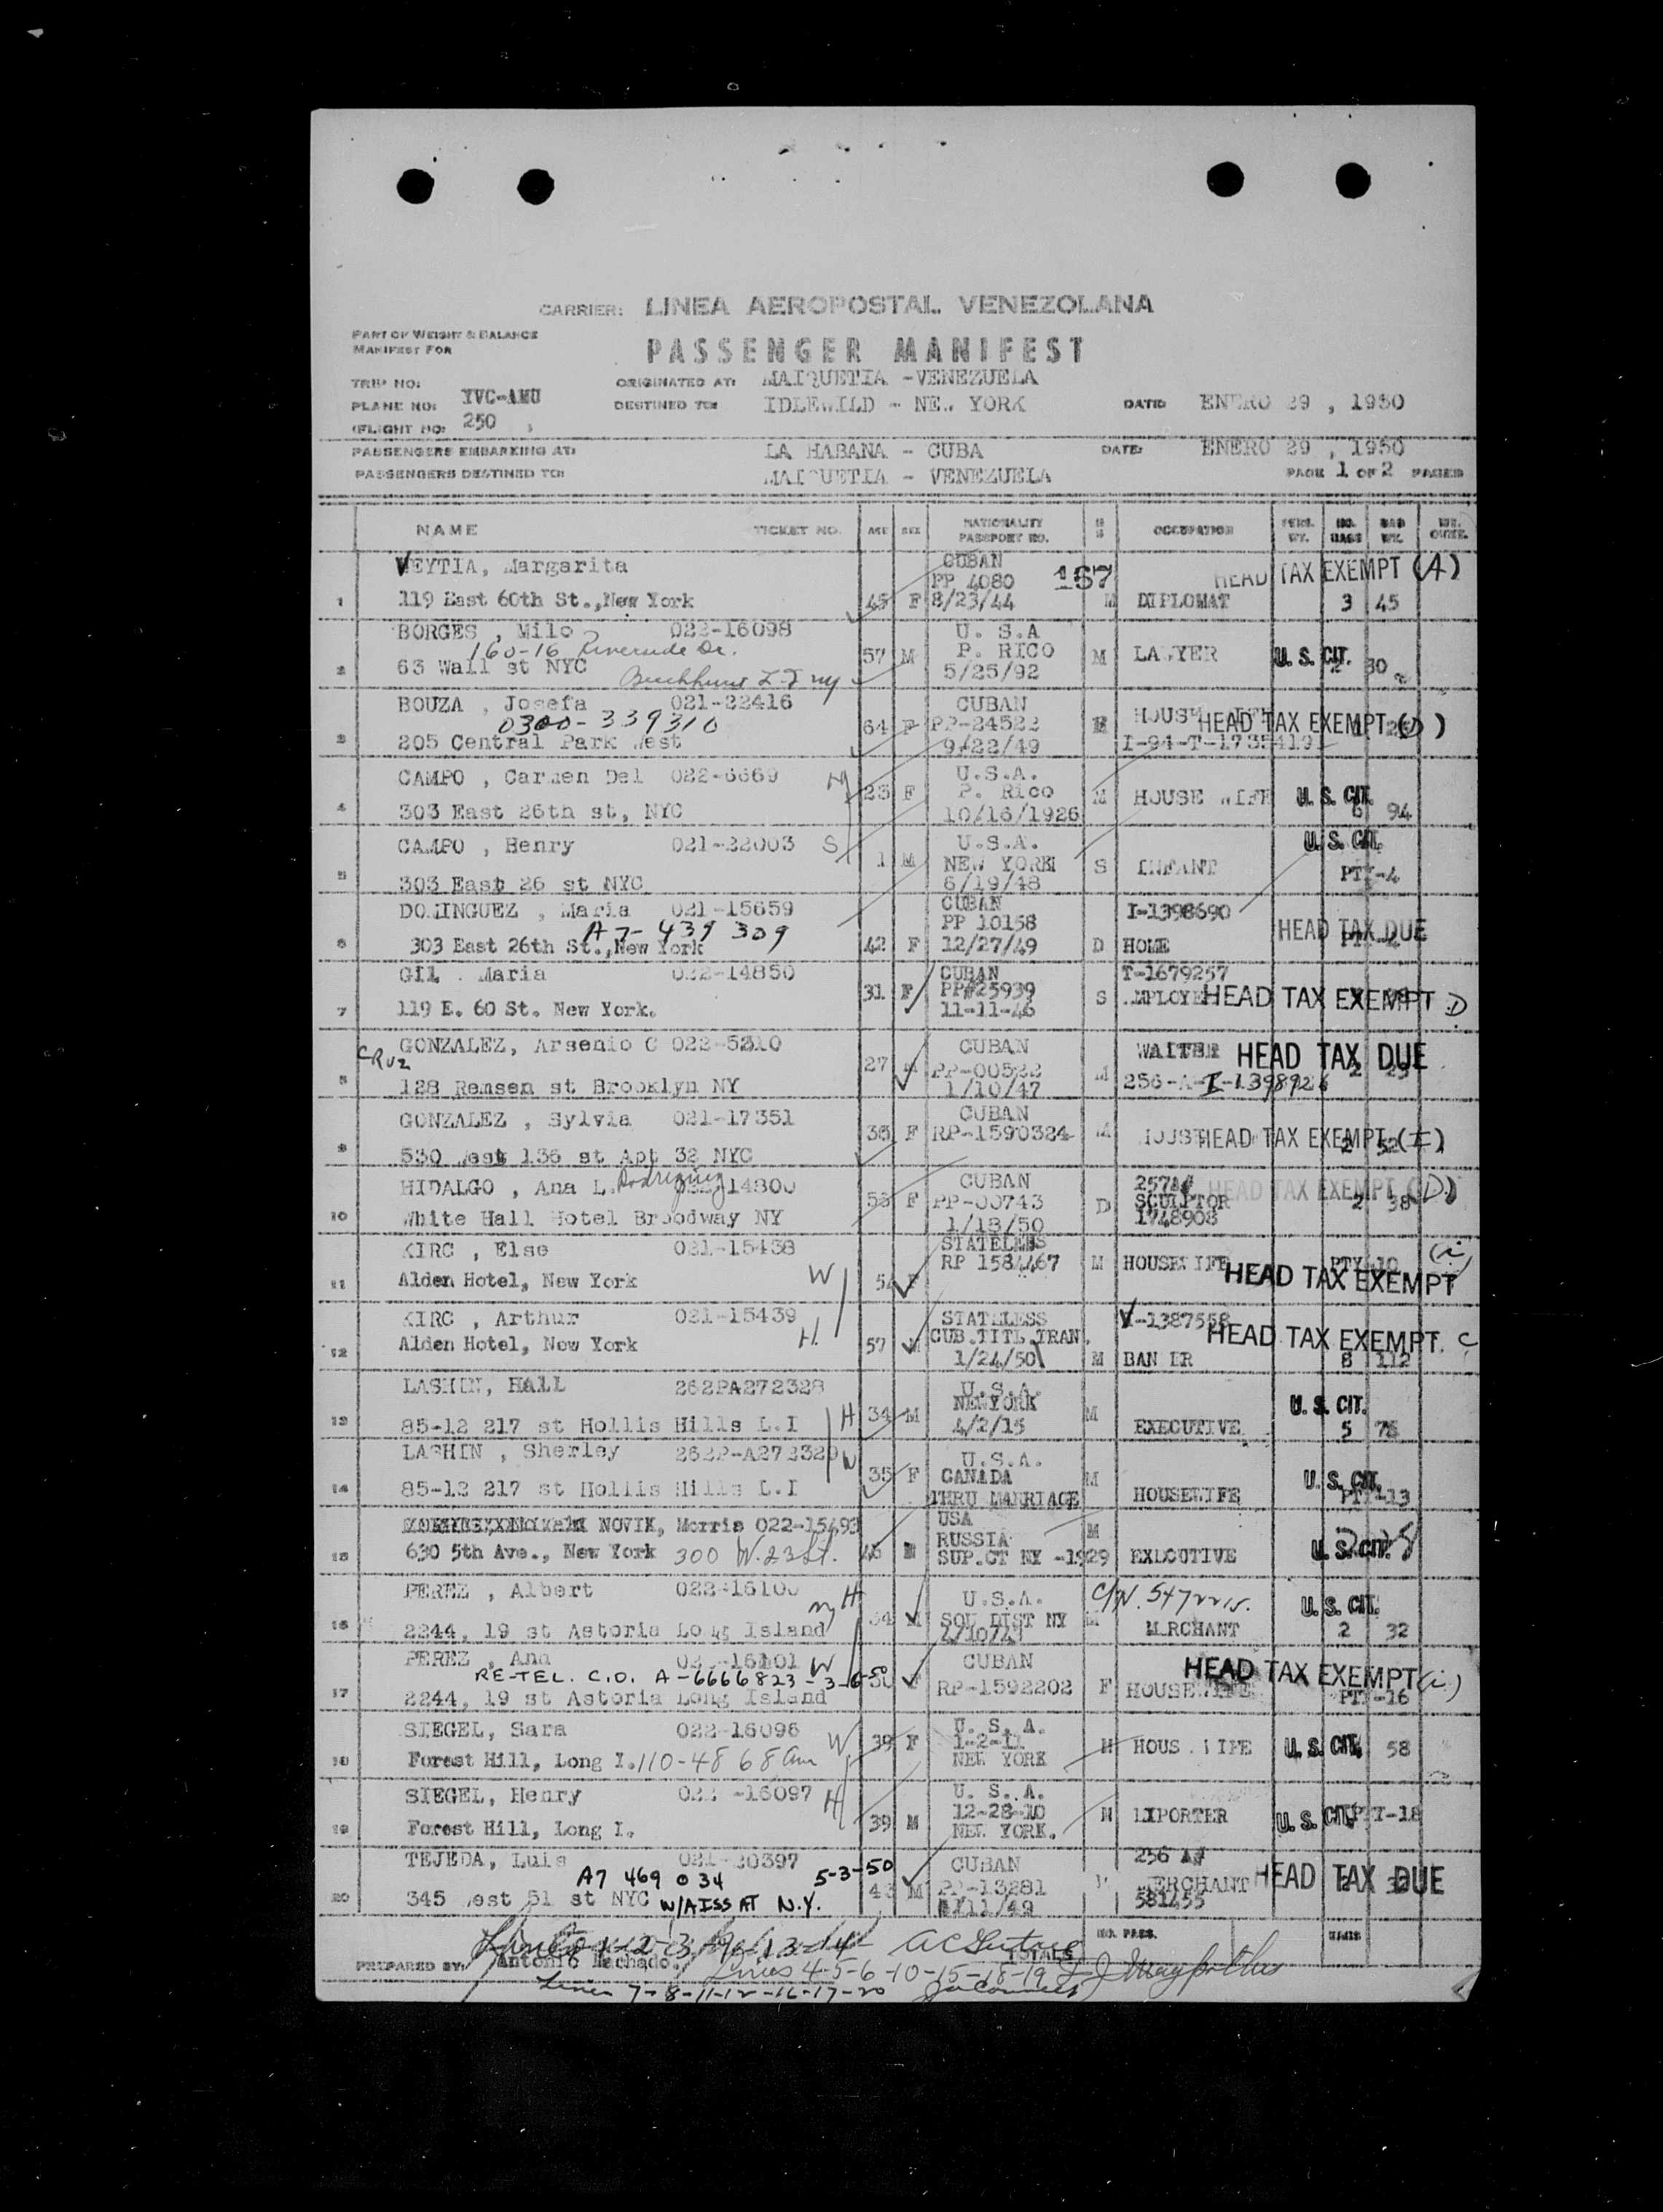 CARRIER: LINEA AEROPOSTAL VENEZOLANA
PART OF WEIGHT & BALANCE
MANIFEST FOR
PASSENGER MANIFEST
TRIP NO:
ORIGINATED AT: MAIQUETIA -VENEZUELA
PLANE NO: YVC-AMU
DESTINED TO: IDLEWILD - NEW YORK DATE: ENERO 29 , 1950
(FLIGHT NO: 250
PASSENGERS EMBARKING AT: LA HABANA - CUBA DATE: ENERO 29 , 1950
PASSENGERS DESTINED TO: MAIQUETIA - VENEZUELA PAGE 1 OF 2 PAGES
NAME TICKET NO. AGE SEX NATIONALITY PASSPORT NO. OCCUPATION PERS. WT. NO. BAGS BAG WT.
VEYTIA, Margarita CUBAN
PP 4080 157 HEAD TAX EXEMPT (A)
1 119 East 60th St.,New York 45 F 8/23/44 M DIPLOMAT 3 45
BORGES , Milo 022-16098 U. S.A
160-16 Riverside Dr. 57 M P. RICO M LAWYER U. S. CIT.
2 63 Wall st NYC Beechhurst L I ny 5/25/92
BOUZA , Josefa 021-22416 CUBAN
0300-339310 64 F PP-24522 HEAD TAX EXEMPT
3 205 Central Park West 9/22/49 I-94-T-1735419
CAMPO , Carmen Del 022-6669 U.S.A.
H 23 F P. Rico M HOUSE WIFE U. S. CIT.
4 303 East 26th st, NYC 10/16/1926 6 94
CAMPO , Henry 021-22003 S U.S.A. U. S. CIT.
1 M NEW YORK S INFANT
5 303 East 26 st NYC 6/19/48 PTY-4
DOMINGUEZ , Maria 021-15659 CUBAN I-1398690
A7-439 309 PP 10158 HEAD TAX DUE
6 303 East 26th St.,New York 42 F 12/27/49 D HOME
GIL . Maria 022-14850 CUBAN T-1679257
31 F PP#25939 S HEAD TAX EXEMPT D
7 119 E. 60 St. New York. 11-11-46
GONZALEZ, Arsenio C 022-5210 CUBAN WAITER HEAD TAX DUE
CRUZ 27 M PP-00522 M
8 128 Remsen st Brooklyn NY 1/10/47
GONZALEZ , Sylvia 021-17351 CUBAN
36 F RP-1590324 M HEAD TAX EXEMPT (I)
9 530 West 136 st Apt 32 NYC
HIDALGO , Ana L. Rodriguez 022-14800 CUBAN HEAD TAX EXEMPT (D)
F PP-00743 D SCULPTOR 2 38
10 White Hall Hotel Broodway NY 1/13/50 1748908
KIRC , Else 021-15438 STATELESS
W 54 F RP 1584467 M HOUSEWIFE (i)
11 Alden Hotel, New York HEAD TAX EXEMPT
KIRC , Arthur 021-15439 STATELESS
H. 57 M CUB.TITL.TRAN. HEAD TAX EXEMPT. C
12 Alden Hotel, New York 1/24/50 M 8 112
LASHIN, HALL 262PA272328 U.S.A.
H 34 M NEWYORK M U. S. CIT.
13 85-12 217 st Hollis Hills L.I 4/2/15 EXECUTIVE 5 78
LASHIN , Sherley 262P-A272329 W U.S.A.
35 F CANADA M U. S. CIT.
14 85-12 217 st Hollis Hills L.I THRU MARRIAGE HOUSEWIFE PTY-13
NOVIK, Morris 022-15493 USA
RUSSIA M
15 630 5th Ave., New York 300 W. 23 St. 46 M SUP.CT NY -1929 EXECUTIVE U. S. CIT.
PEREZ , Albert 022-16100 H U.S.A.
34 M SOU DIST NY M U. S. CIT.
16 2244, 19 st Astoria Long Island MERCHANT 2 32
PEREZ , Ana W CUBAN HEAD TAX EXEMPT (i)
RE-TEL. C.O. A-6666823-3-6-50 F RP-1592202 F HOUSEWIFE
17 2244, 19 st Astoria Long Island PTY-16
SIEGEL, Sara 022-16096 W U. S. A.
39 F 1-2-11 U. S. CIT. 58
18 Forest Hill, Long I. 110-48 68 NEW YORK
SIEGEL, Henry -16097 H U. S. A.
39 M 12-28-10 EXPORTER U. S. CIT. PTY-18
19 Forest Hill, Long I. NEW YORK.
TEJEDA, Luis 021-20397 5-3-50 CUBAN
A7 469 034 M PP-13281 MERCHANT HEAD TAX DUE
20 345 West 51 st NYC W/AISS AT N.Y. 581455
NO. PASS.
PREPARED BY: Antonio Machado. TOTALS
Lines 4-5-6-10-15-18-19
Lines 7-8-11-12-16-17-20